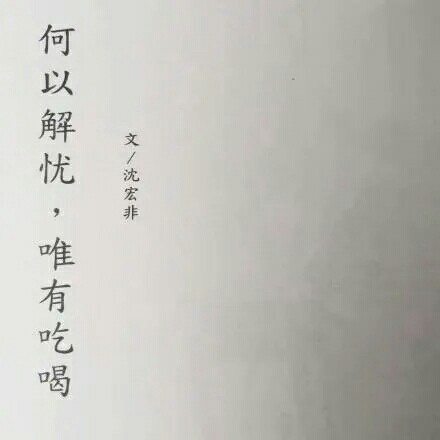 何以解忧，唯有吃喝
文/沈宏非